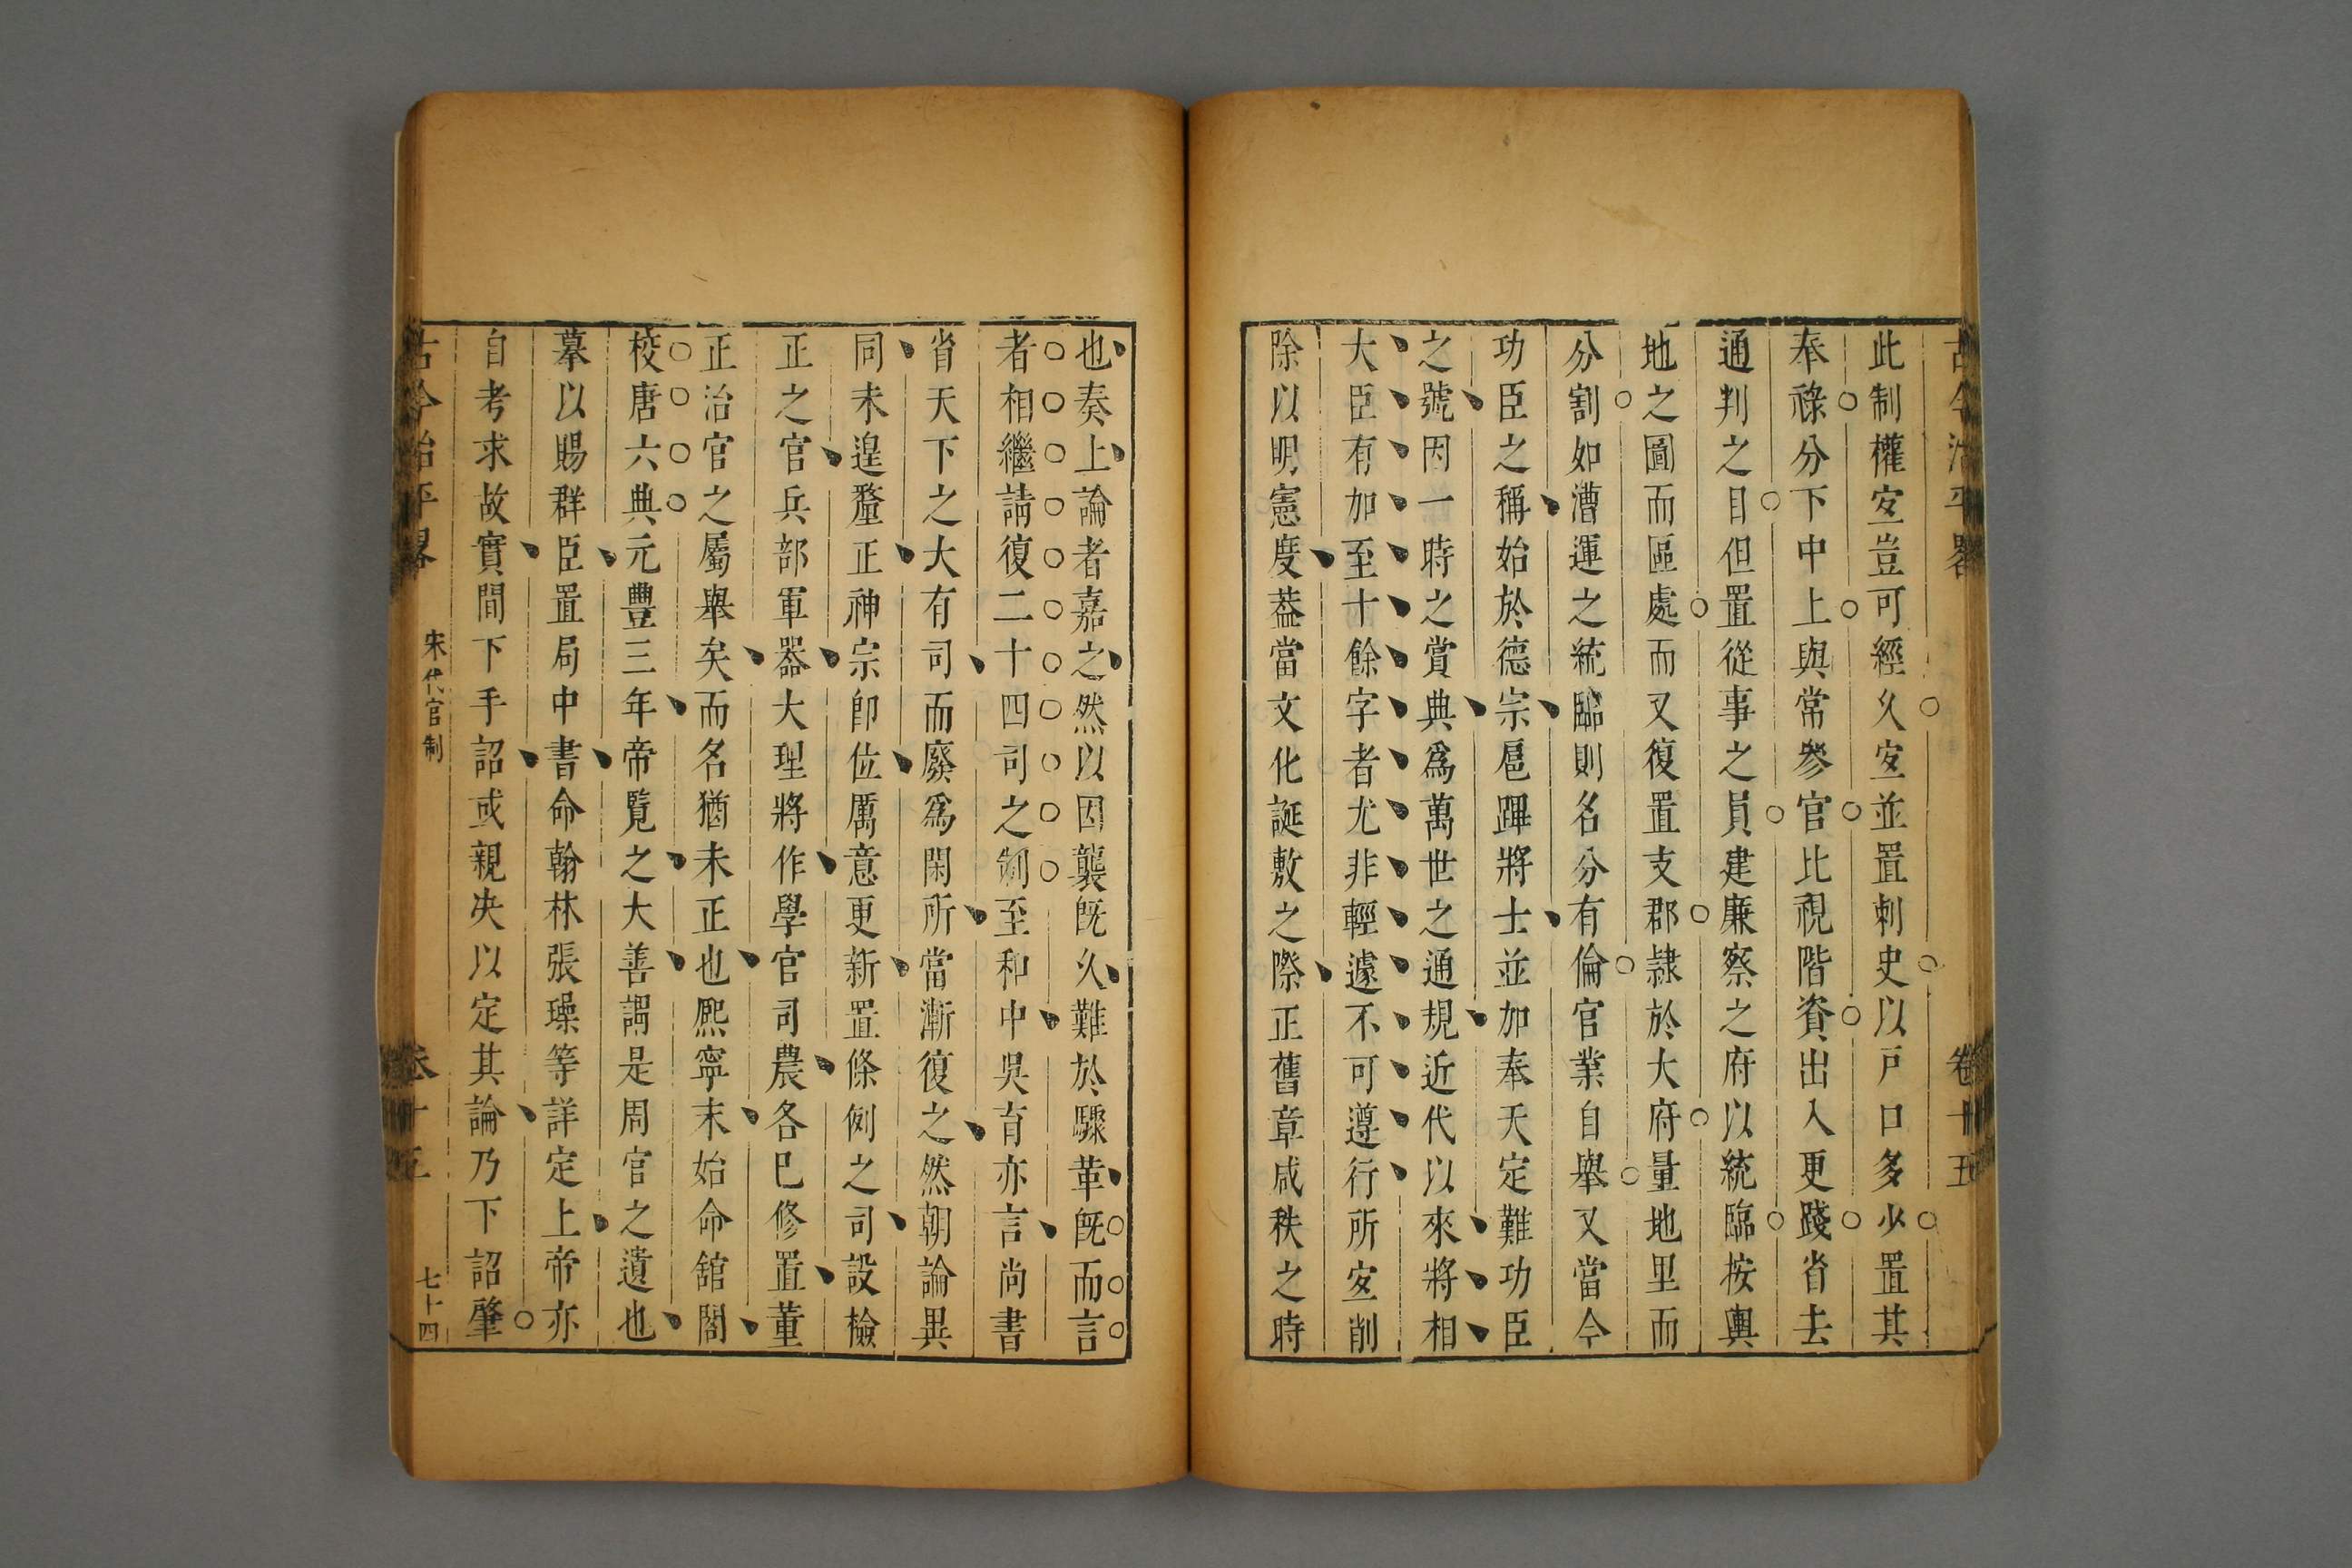 古今治平畧
卷十五
此制權宐豈可經久宐並置刺史以戸口多少置其
奉祿分下中上與常參官比視階資出入更踐省去
通判之目但置從事之員建廉察之府以統臨按輿
地之圖而區處而又復置支郡隷於大府量地里而
分割如漕運之統臨則名分有倫官業自舉又當今
功臣之稱始於德宗扈蹕將士並加奉天定難功臣
之號因一時之賞典爲萬世之通規近代以來將相
大臣有加至十餘字者尤非輕遽不可遵行所宐削
除以明憲度葢當文化誕敷之際正舊章咸秩之時
也奏上論者嘉之然以因襲旣久難於驟革旣而言
者相繼請復二十四司之制至和中吳育亦言尚書
省天下之大有司而廢爲閑所當漸復之然朝論異
同未遑釐正神宗卽位厲意更新置條例之司設檢
正之官兵部軍器大理將作學官司農各已修置董
正治官之屬舉矣而名猶未正也熈寧末始命舘閣
校唐六典元豐三年帝覽之大善謂是周官之遺也
摹以賜群臣置局中書命翰林張璪等詳定上帝亦
自考求故實間下手詔或親决以定其論乃下詔肇
古今治平畧
宋代官制
卷十五
七十四